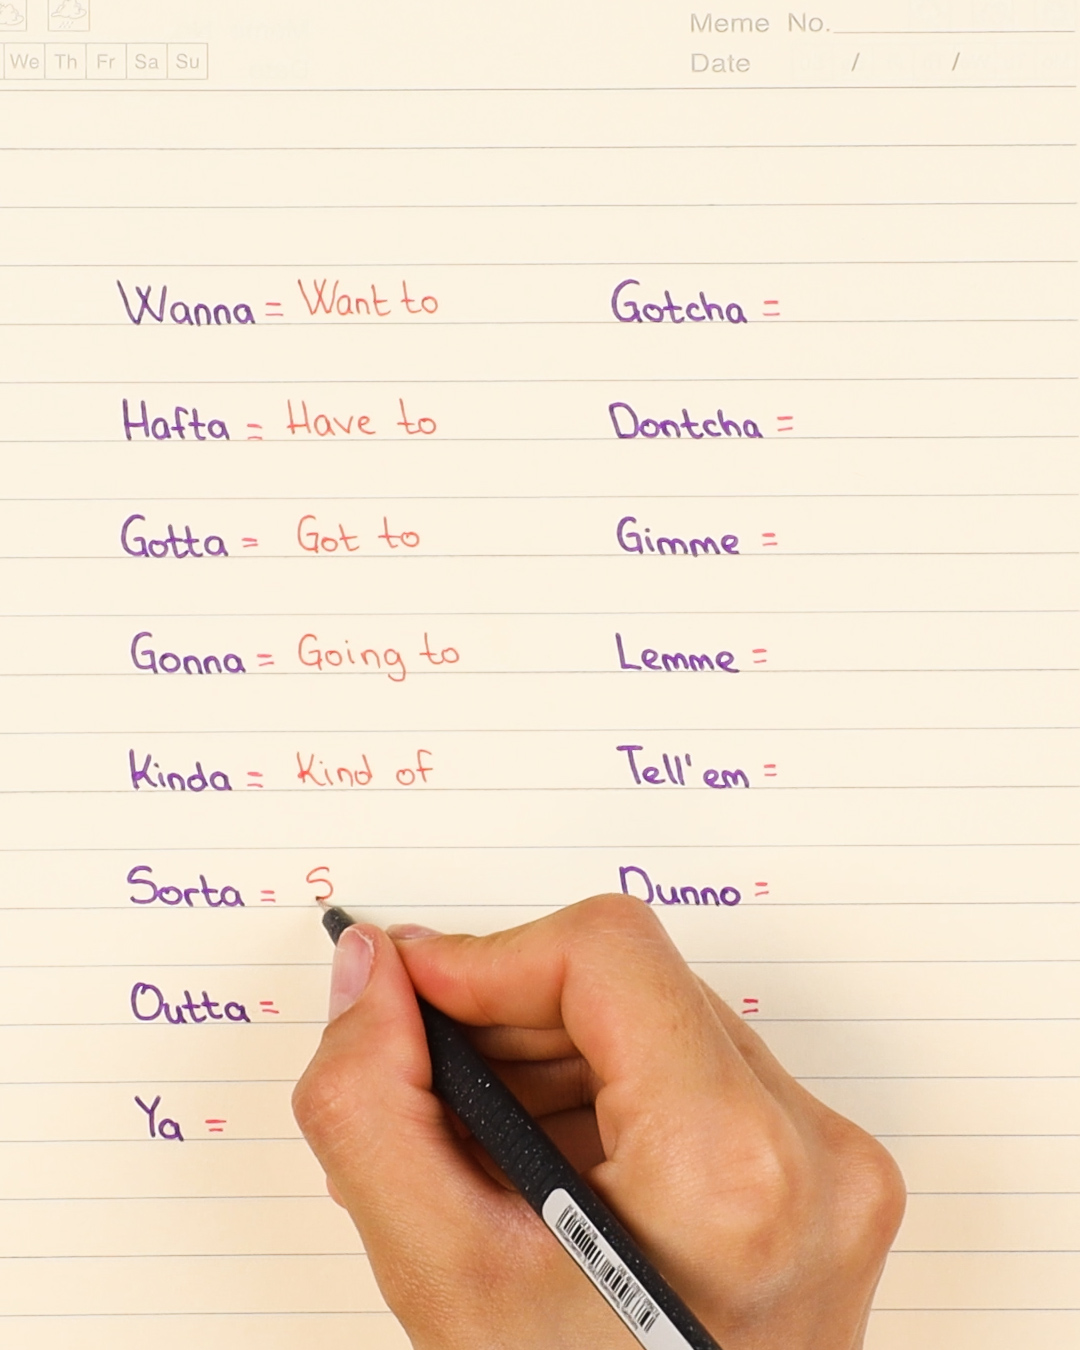 Meme No.
We Th Fr Sa Su
Date / /
Wanna = Want to
Hafta = Have to
Gotta = Got to
Gonna = Going to
Kinda = Kind of
Sorta = S
Outta =
Ya =
Gotcha =
Dontcha =
Gimme =
Lemme =
Tell'em =
Dunno =
=